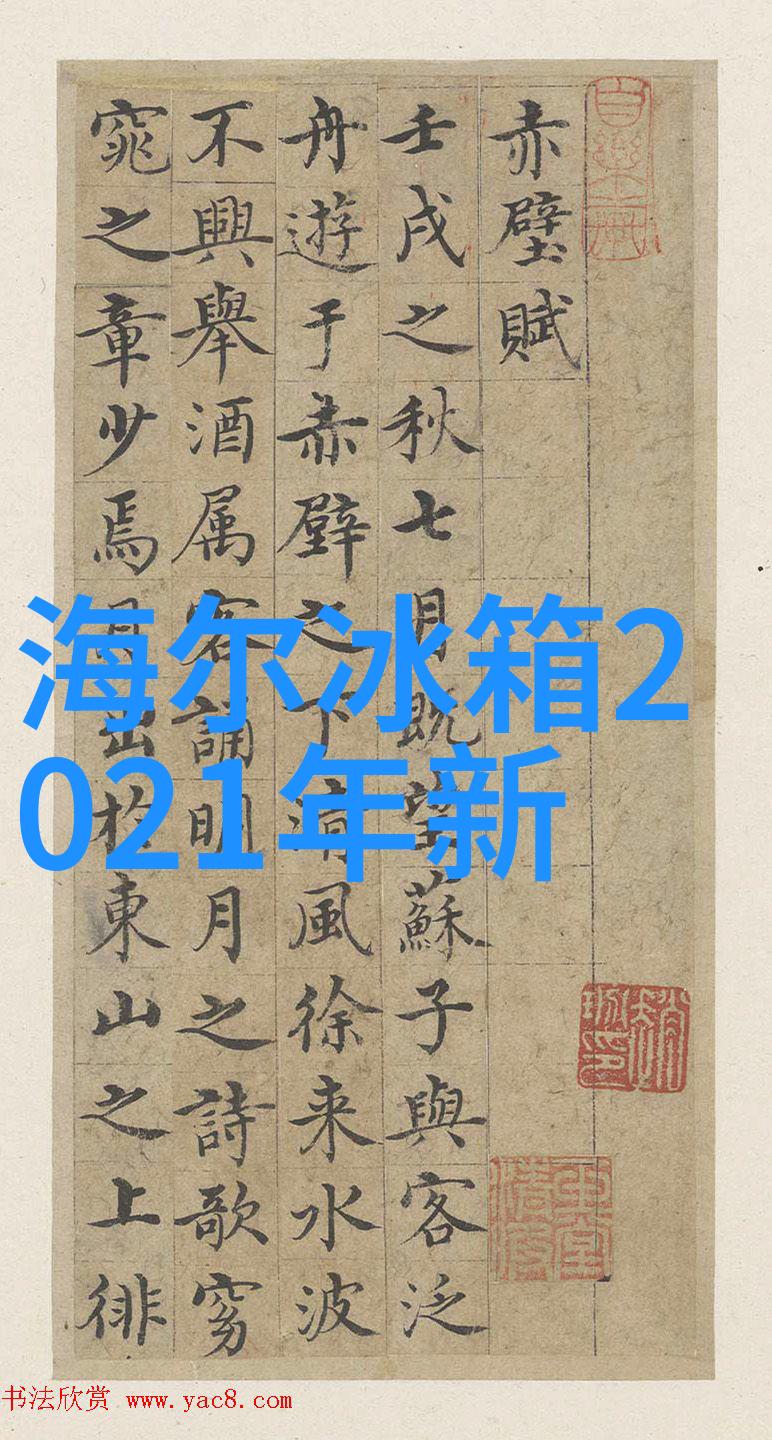 赤壁賦
壬戌之秋七月既望蘇子與客泛
舟遊于赤壁之下清風徐来水波
不興舉酒属客誦明月之詩歌窈
窕之章少焉月出於東山之上徘
海尔冰箱2
021年新
书法欣赏 www.yac8.com